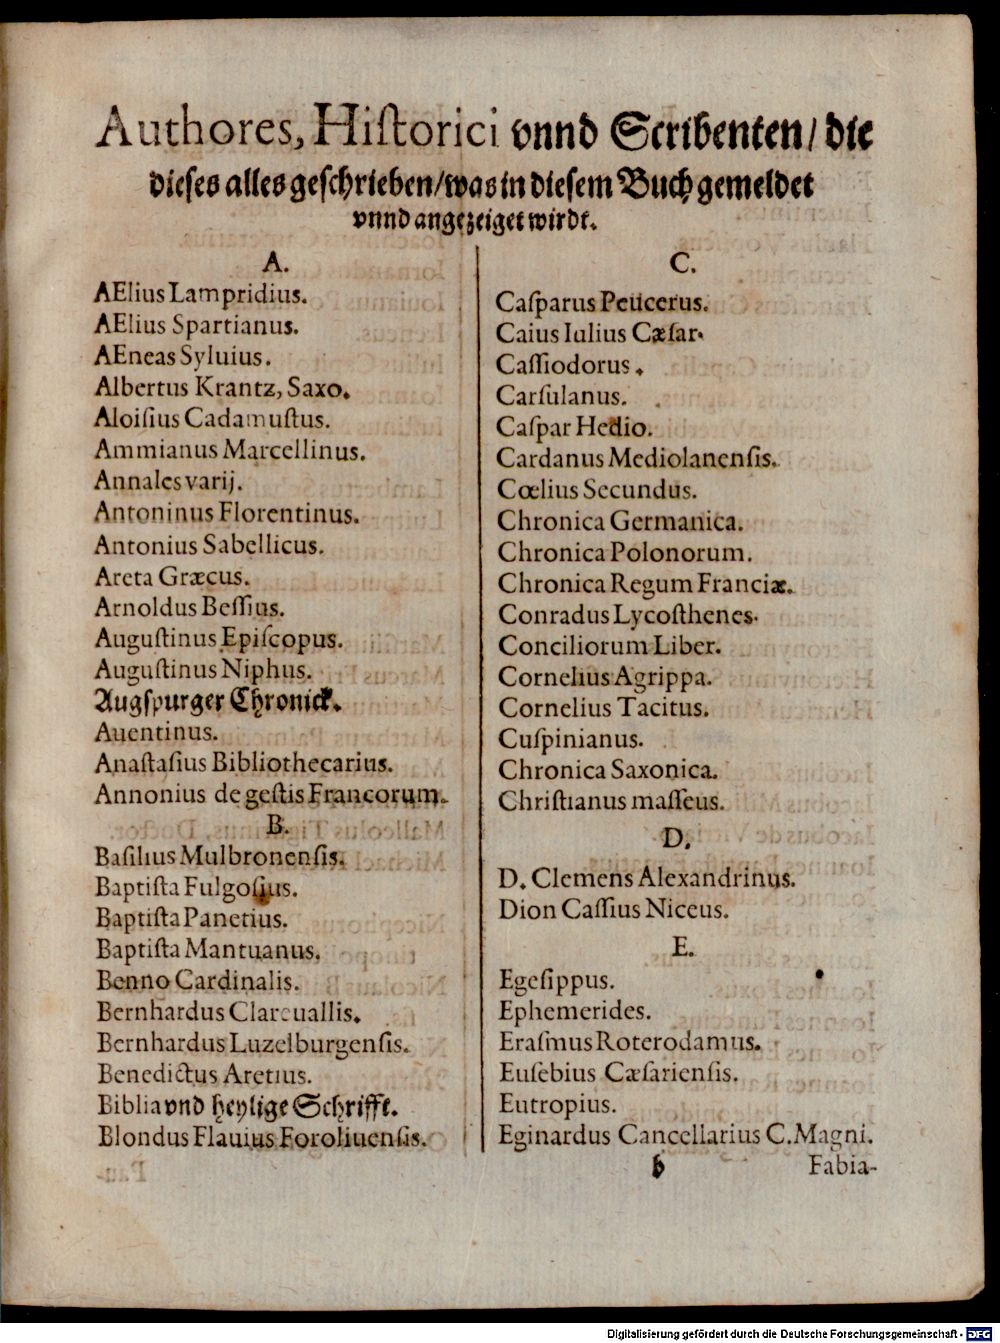 Authores, Hiſtorici vnnd Scribenten/ die
dieſes alles geſchrieben/ was in dieſem Buch gemeldet
vnnd angezeiget wirdt.
A.
AElius Lampridius.
AElius Spartianus.
AEneas Syluius.
Albertus Krantz, Saxo.
Aloiſius Cadamuſtus.
Ammianus Marcellinus.
Annales varij.
Antoninus Florentinus.
Antonius Sabellicus.
Areta Græcus.
Arnoldus Beſſius.
Auguſtinus Epiſcopus.
Auguſtinus Niphus.
Augſpurger Chronick.
Auentinus.
Anaſtaſius Bibliothecarius.
Annonius de geſtis Francorum.
B.
Baſilius Mulbronenſis.
Baptiſta Fulgoſius.
Baptiſta Panetius.
Baptiſta Mantuanus.
Benno Cardinalis.
Bernhardus Clareuallis.
Bernhardus Luzelburgenſis.
Benedictus Aretius.
Biblia vnd heylige Schrifft.
Blondus Flauius Foroliuenſis.
C.
Caſparus Peucerus.
Caius Iulius Cæſar.
Caſſiodorus.
Carſulanus.
Caſpar Hedio.
Cardanus Mediolanenſis.
Cœlius Secundus.
Chronica Germanica.
Chronica Polonorum.
Chronica Regum Franciæ.
Conradus Lycoſthenes.
Conciliorum Liber.
Cornelius Agrippa.
Cornelius Tacitus.
Cuſpinianus.
Chronica Saxonica.
Chriſtianus maſſeus.
D.
D. Clemens Alexandrinus.
Dion Caſſius Niceus.
E.
Egeſippus.
Ephemerides.
Eraſmus Roterodamus.
Euſebius Cæſarienſis.
Eutropius.
Eginardus Cancellarius C. Magni.
b Fabia-
Digitalisierung gefördert durch die Deutsche Forschungsgemeinschaft - DFG